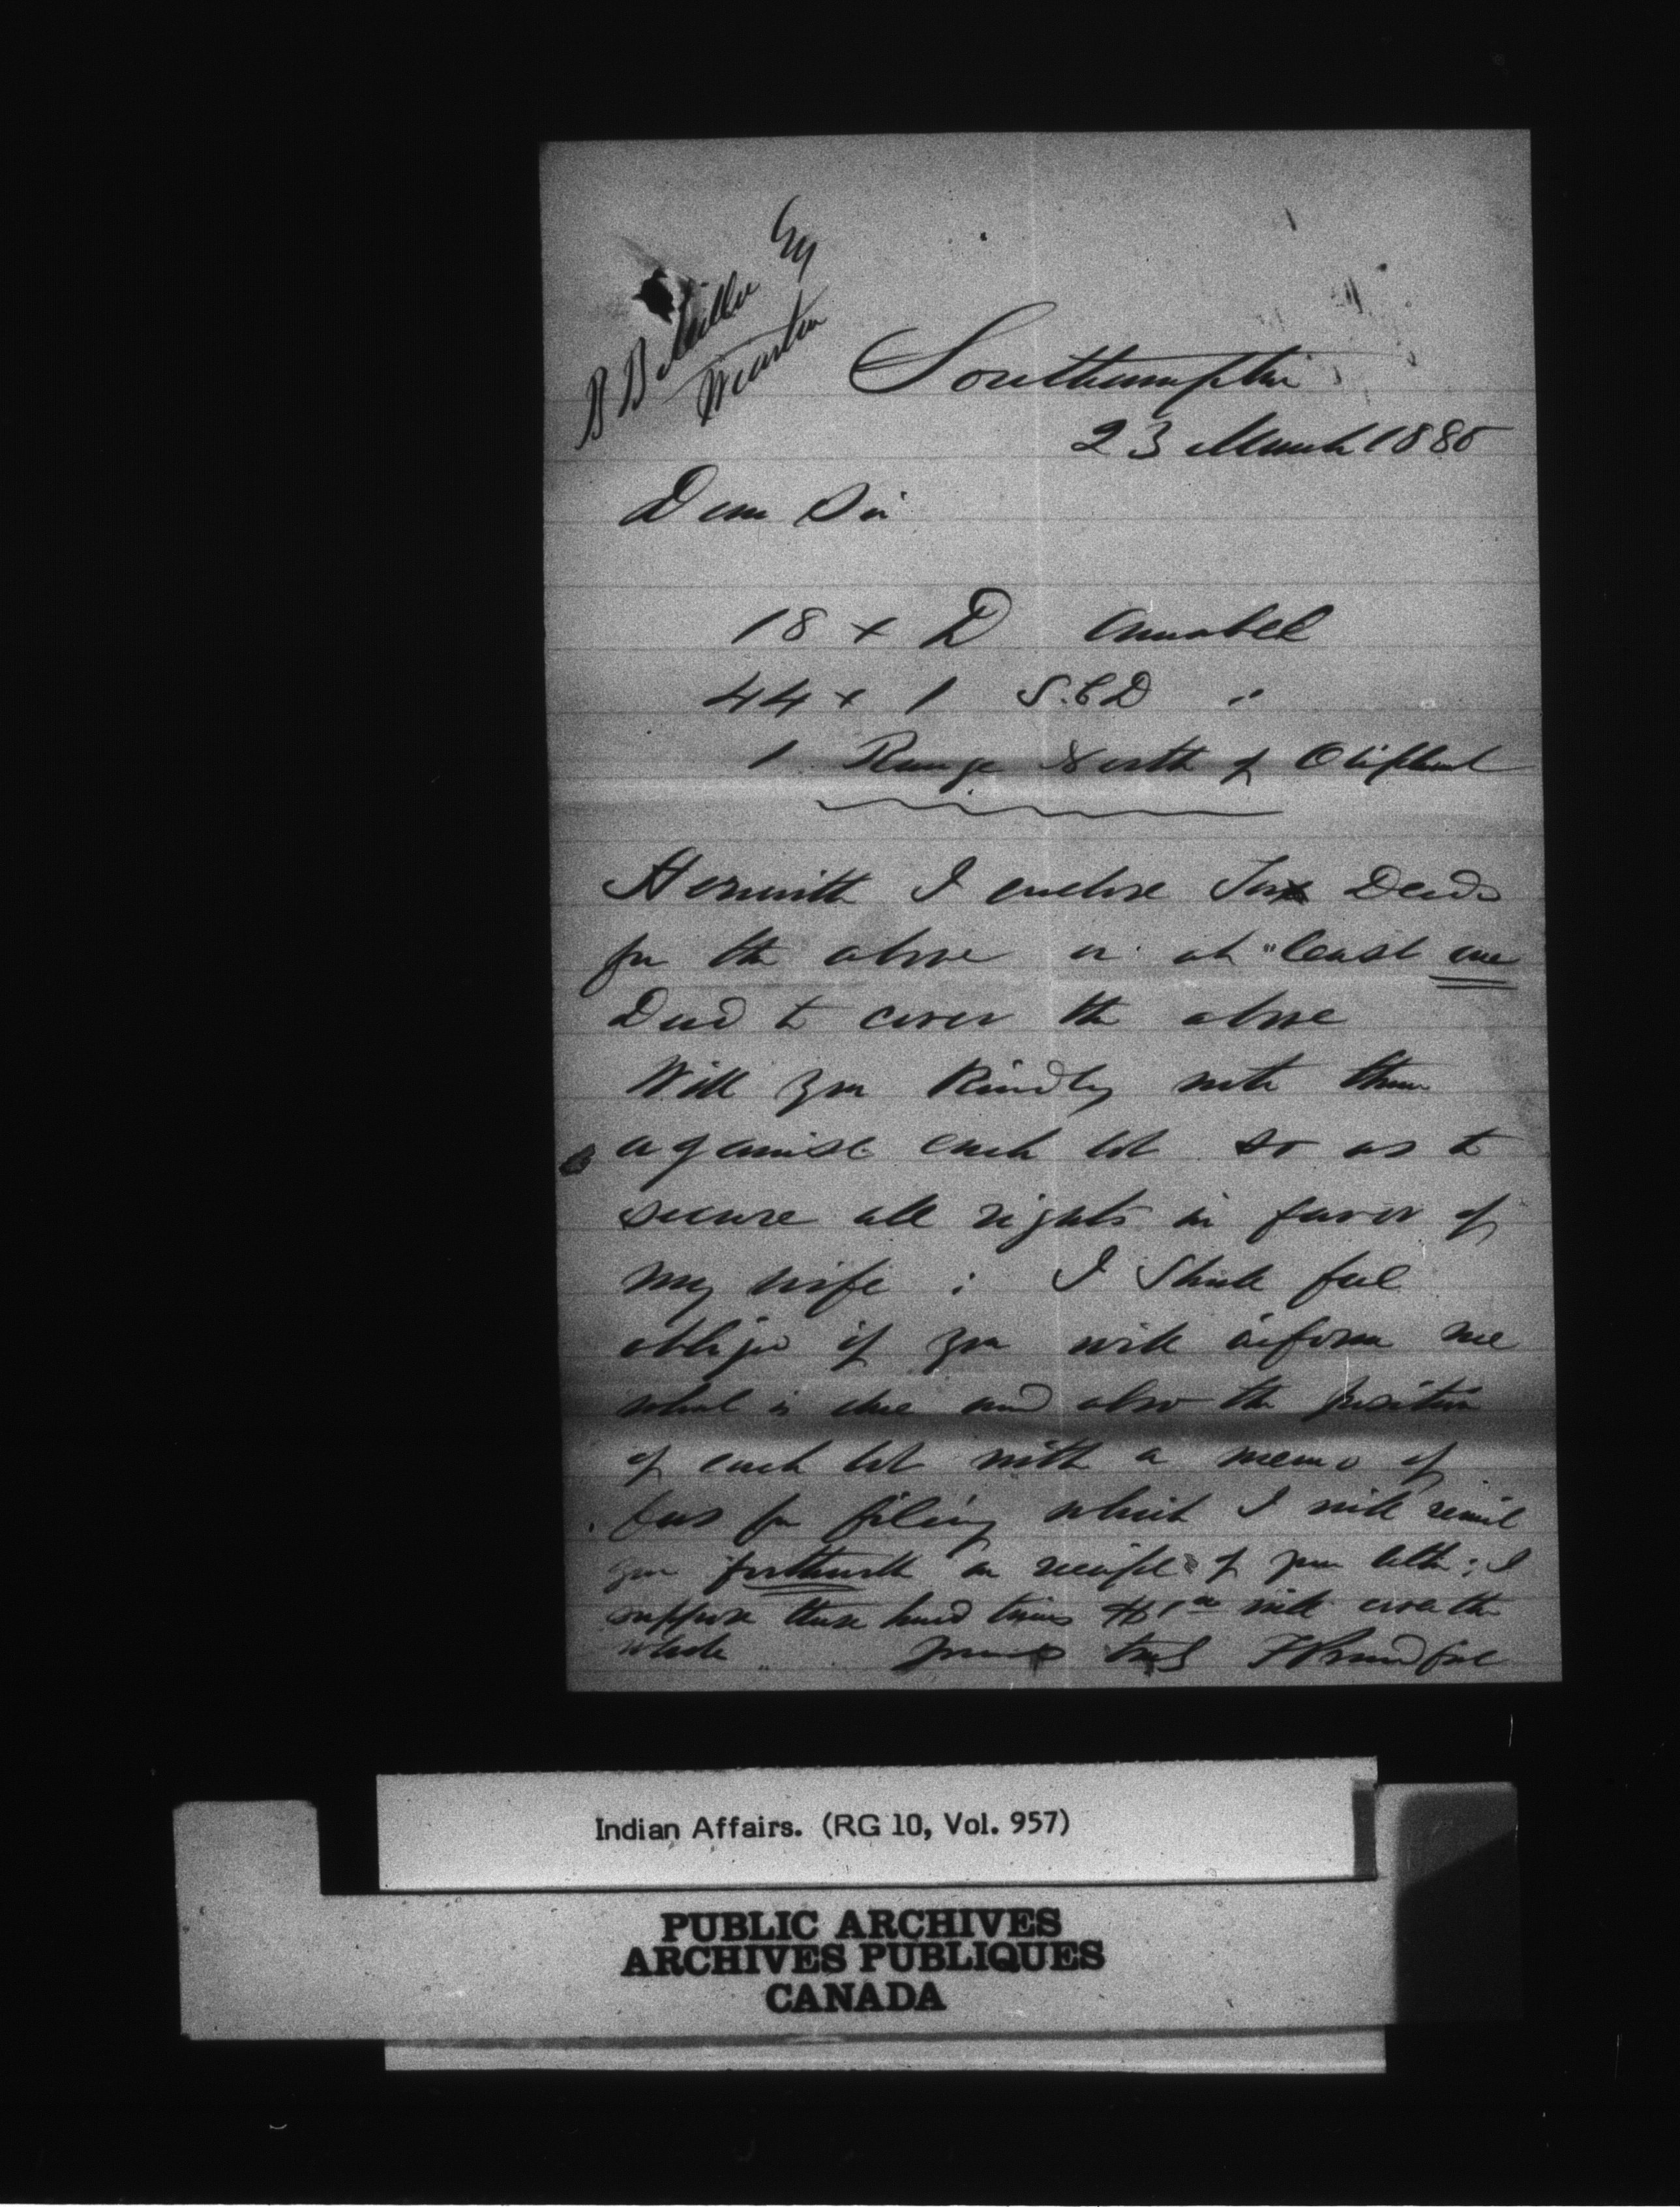 B B Miller Esq
Wiarton
Southampton
23 March 1885
Dear Sir
18 + D Amabel
44 + 1 S.C.D "
1 Range North of Oliphant
Herewith I enclose Tax Deeds
for the above or at "least one
Deed to cover the above
Will you Kindly note them
against each lot so as to
secure all rights in favor of
my wife ; I Shall feel
obliged if you will inform me
what is due and also the position
of each lot with a memo of
fees for filing which I will remit
you forthwith on receipt of your letter ; I
suppose these hard times $1 00 will cover the
whole yours truly
Indian Affairs. (RG 10, Vol. 957)
PUBLIC ARCHIVES
ARCHIVES PUBLIQUES
CANADA